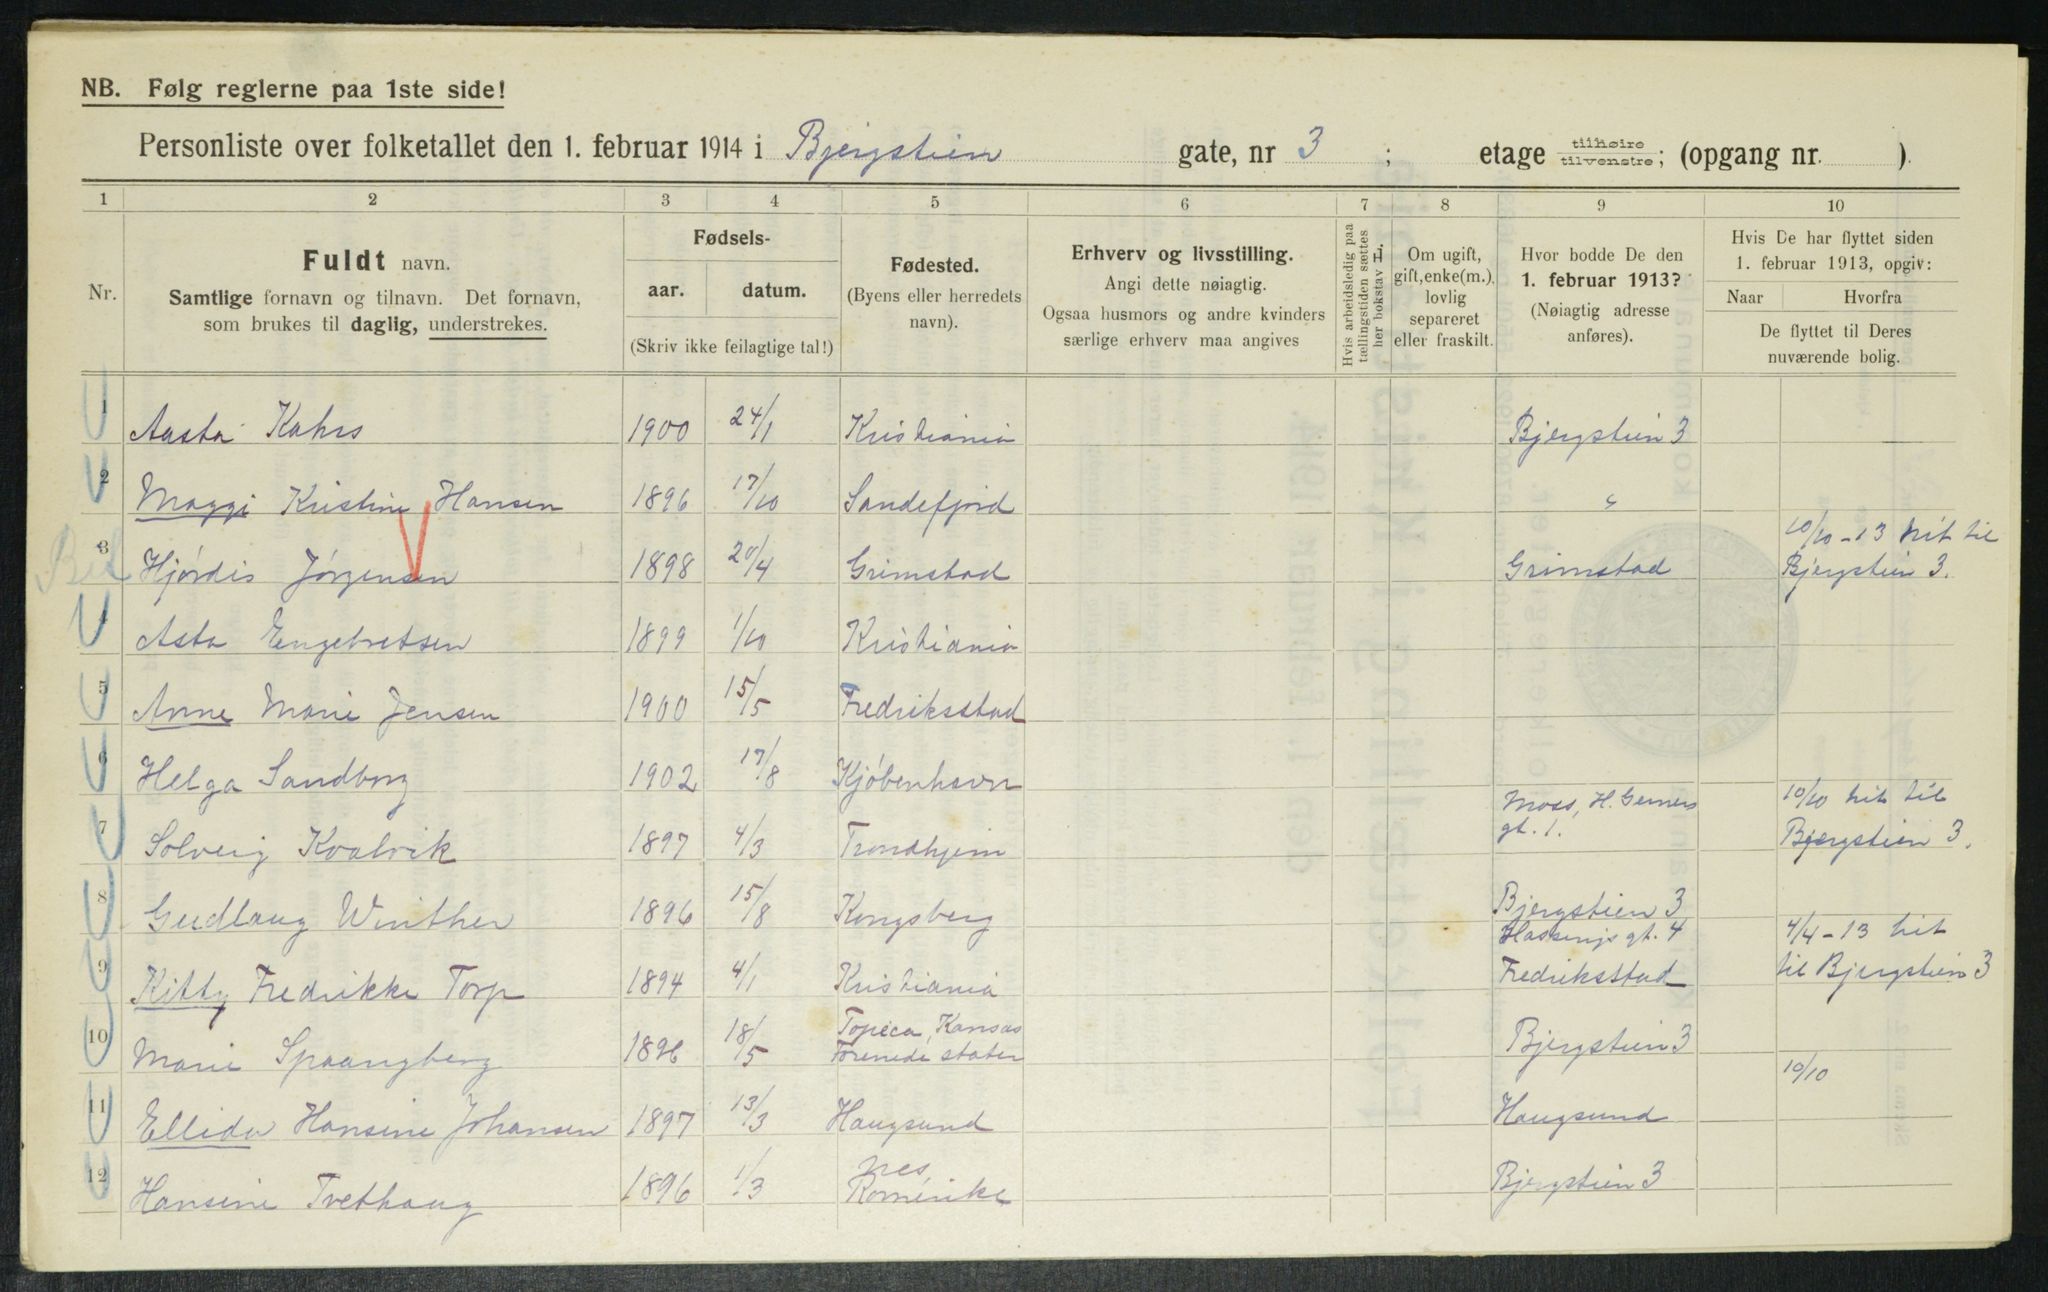 NB. Følg reglerne paa 1ste side!
Personliste over folketallet den 1. februar 1914 i Bjergstien gate, nr 3 ; etage tilhøire tilvenstre; (opgang nr. ).
1 2 3 4 5 6 7 8 9 10
Nr.
Fuldt navn.
Samtlige fornavn og tilnavn. Det fornavn,
som brukes til daglig, understrekes.
Fødsels-
aar. datum.
(Skriv ikke feilagtige tal!)
Fødested.
(Byens eller herredets
navn).
Erhverv og livsstilling.
Angi dette nøiagtig.
Ogsaa husmors og andre kvinders
særlige erhverv maa angives
Hvis arbeidsledig paa
tællingstiden sættes
her bokstav l.
Om ugift,
gift, enke(m.),
lovlig
separeret
eller fraskilt.
Hvor bodde De den
1. februar 1913?
(Nøiagtig adresse
anføres).
Hvis De har flyttet siden
1. februar 1913, opgiv:
Naar Hvorfra
De flyttet til Deres
nuværende bolig.
1 Aasta Kahrs 1900 24/1 Kristiania Bjergstien 3
2 Maggi Kristine Hansen 1896 17/10 Sandefjord "
3 Hjørdis Jørgensen 1898 20/4 Grimstad Grimstad 10/10-13 hit til
Bjergstien 3.
4 Asta Engebretsen 1899 1/10 Kristiania
5 Anne Marie Jensen 1900 15/5 Fredriksstad
6 Helga Sandborg 1902 17/8 Kjøbenhavn
7 Solveig Kvalvik 1897 4/3 Trondhjem Moss, H. Gerners
gt. 1. 10/10 hit til
Bjergstien 3.
8 Gudlaug Winther 1896 15/8 Kongsberg Bjergstien 3
9 Kitty Fredrikke Torp 1894 4/1 Kristiania gt. 4
Fredriksstad 4/4-13 hit
til Bjergstien 3
10 Marie Spaangberg 1896 18/5 Topeca, Kansas
Forenede stater Bjergstien 3
11 Ellida Hansine Johansen 1897 13/3 Haugsund Haugsund 10/10
12 Hansine Tvethaug 1896 1/3 Nes,
Romerike Bjergstien 3